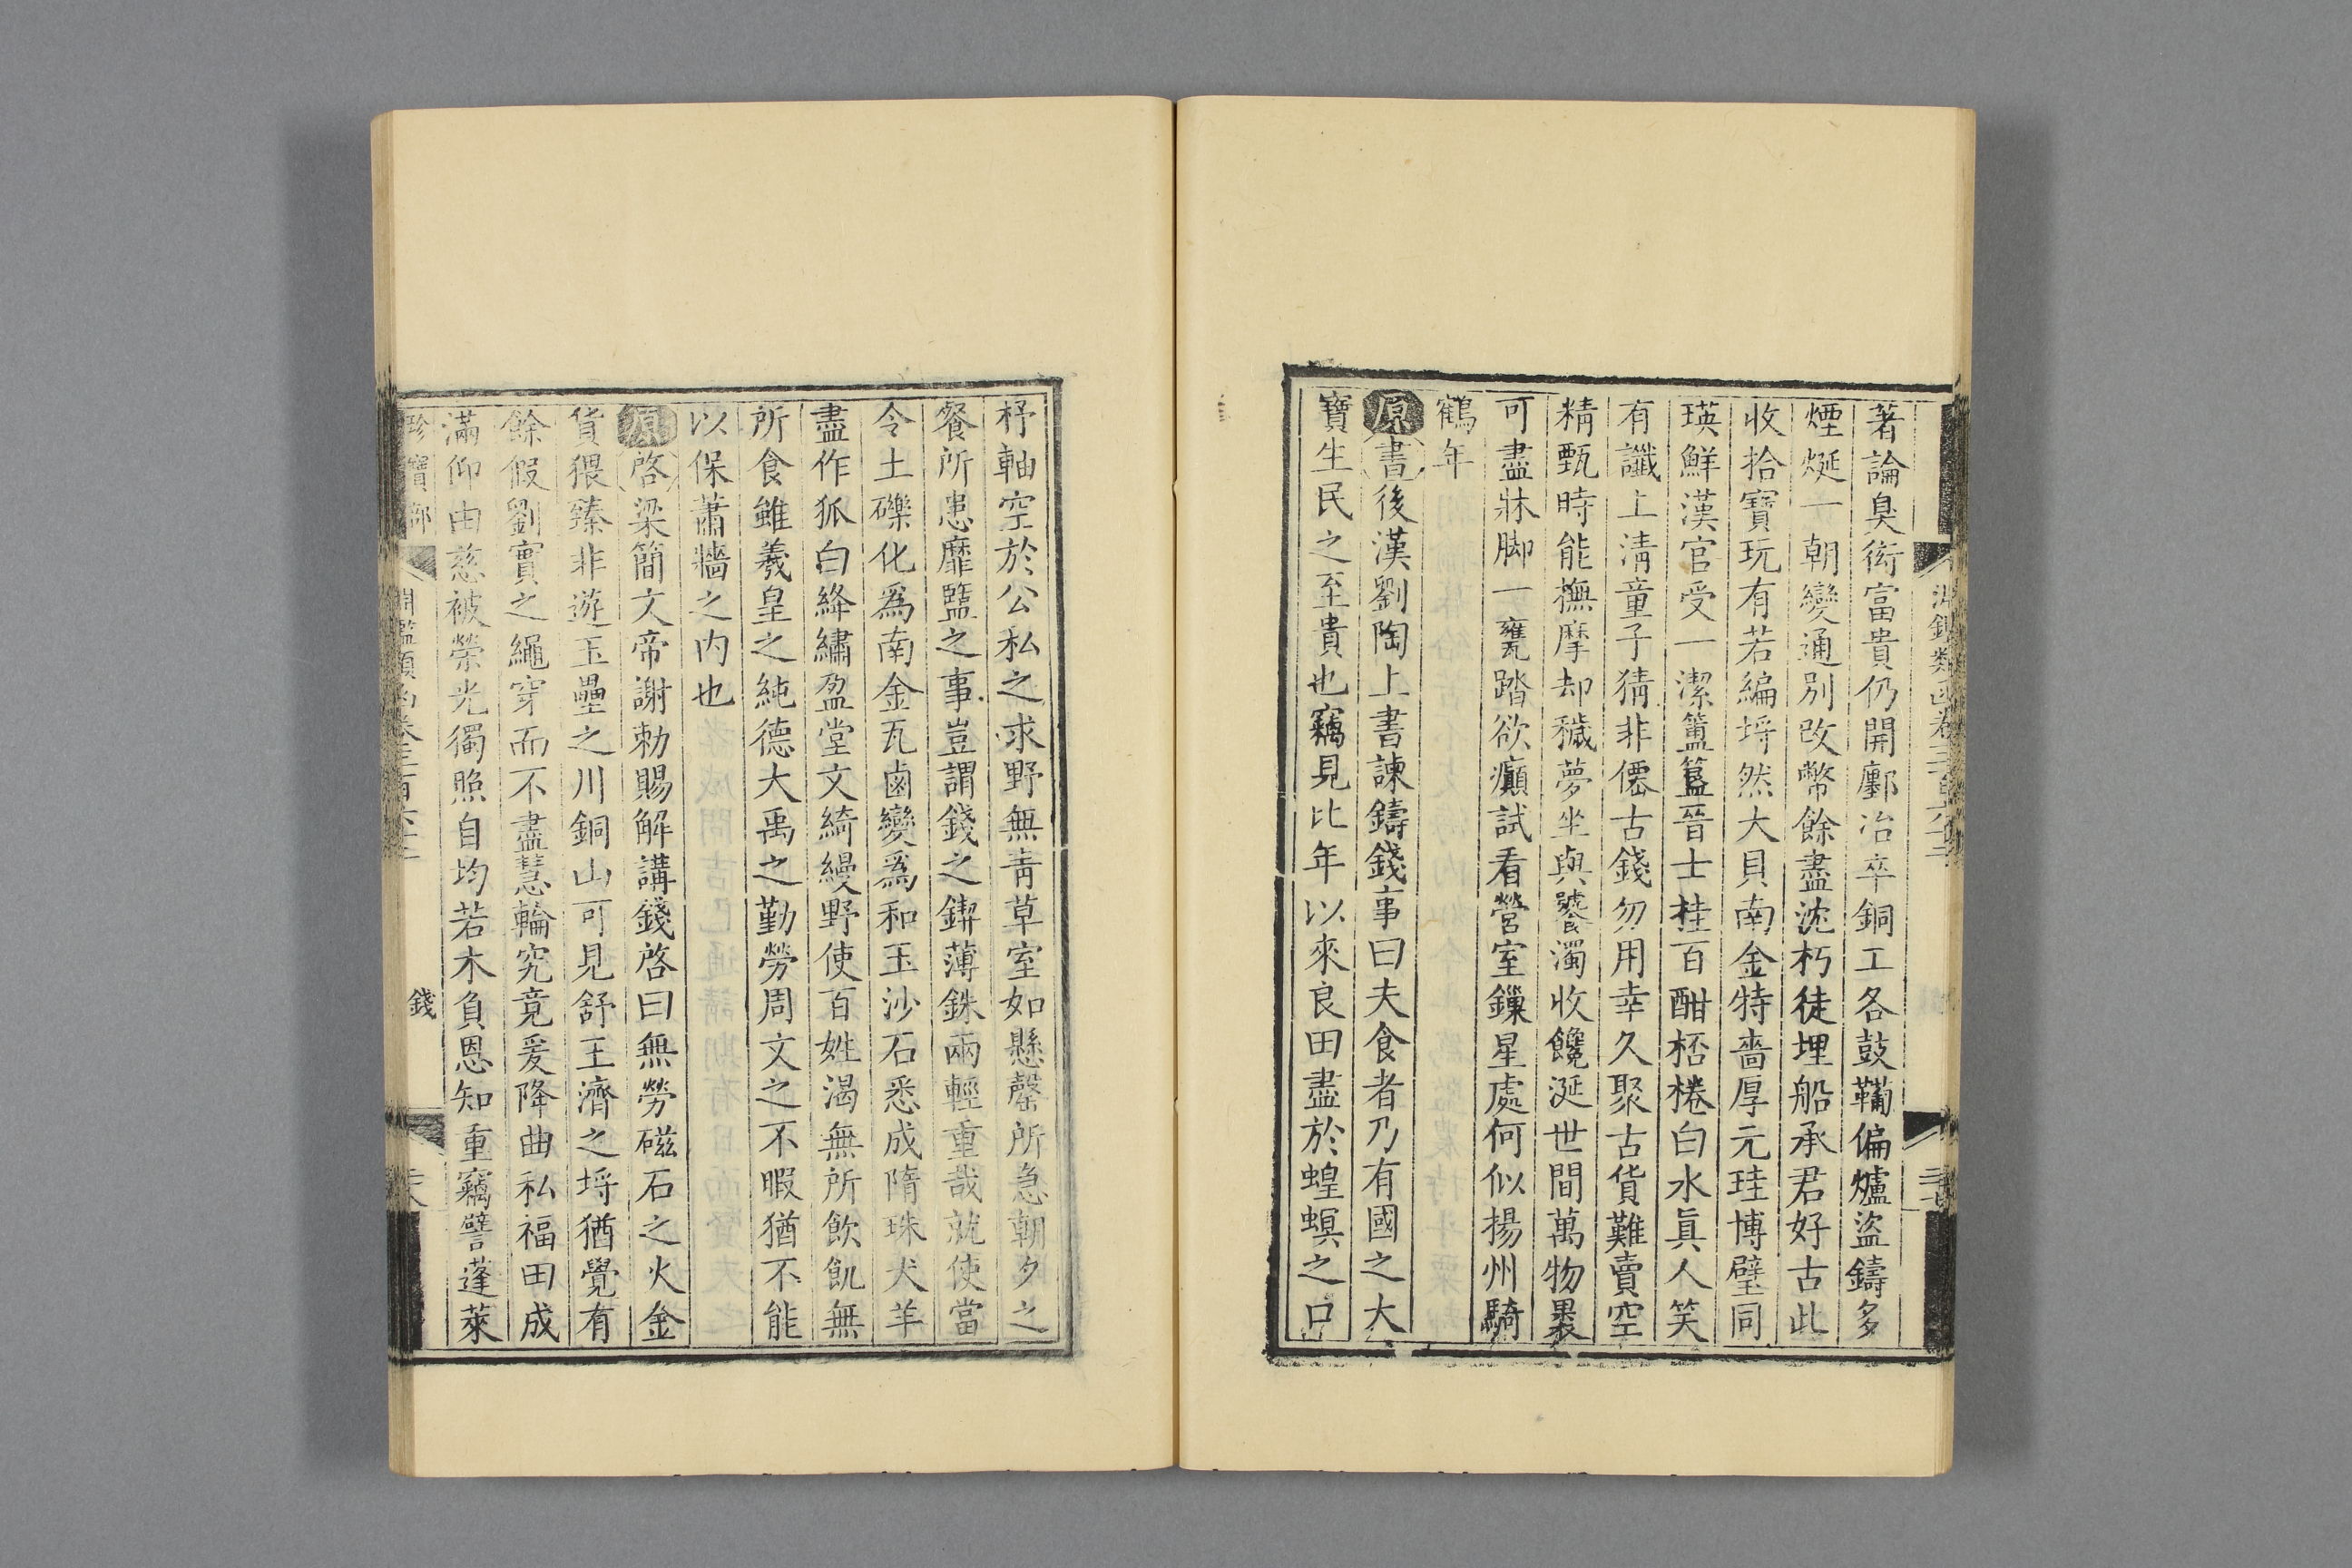 著論臭銜富貴仍開鄽冶卒銅工各鼓鞴偏爐盜鑄多
煙烻一朝變通別改幣餘盡沈朽徒埋船承君好古此
收拾寶玩有若編埒然大貝南金特嗇厚元珪博璧同
瑛鮮漢官受一潔簠簋晉士挂百酣桮棬白水眞人笑
有讖上淸童子猜非僊古錢勿用幸久聚古貨難賣空
精甄時能撫摩却穢夢坐與饕濁收饞涎世間萬物裹
可盡牀脚一甕踏欲癲試看營室鏁星處何似揚州騎
鶴年
原書後漢劉陶上書諫鑄錢事曰夫食者乃有國之大
寶生民之至貴也竊見比年以來良田盡於蝗螟之口
杼軸空於公私之求野無靑草室如懸罄所急朝夕之
餐所患靡盬之事豈謂錢之鍥薄銖兩輕重哉就使當
令土礫化爲南金瓦鹵變爲和玉沙石悉成隋珠犬羊
盡作狐白絳繡盈堂文綺縵野使百姓渴無所飮飢無
所食雖羲皇之純德大禹之勤勞周文之不暇猶不能
以保蕭牆之內也
原啓梁簡文帝謝勑賜解講錢啓曰無勞磁石之火金
貨猥臻非遊玉壘之川銅山可見舒王濟之埒猶覺有
餘假劉寶之繩穿而不盡慧輪究竟爰降曲私福田成
滿仰由慈被榮光獨照自均若木負恩知重竊譬蓬萊
珍寶部 淵鑑類函卷三百六十二 錢